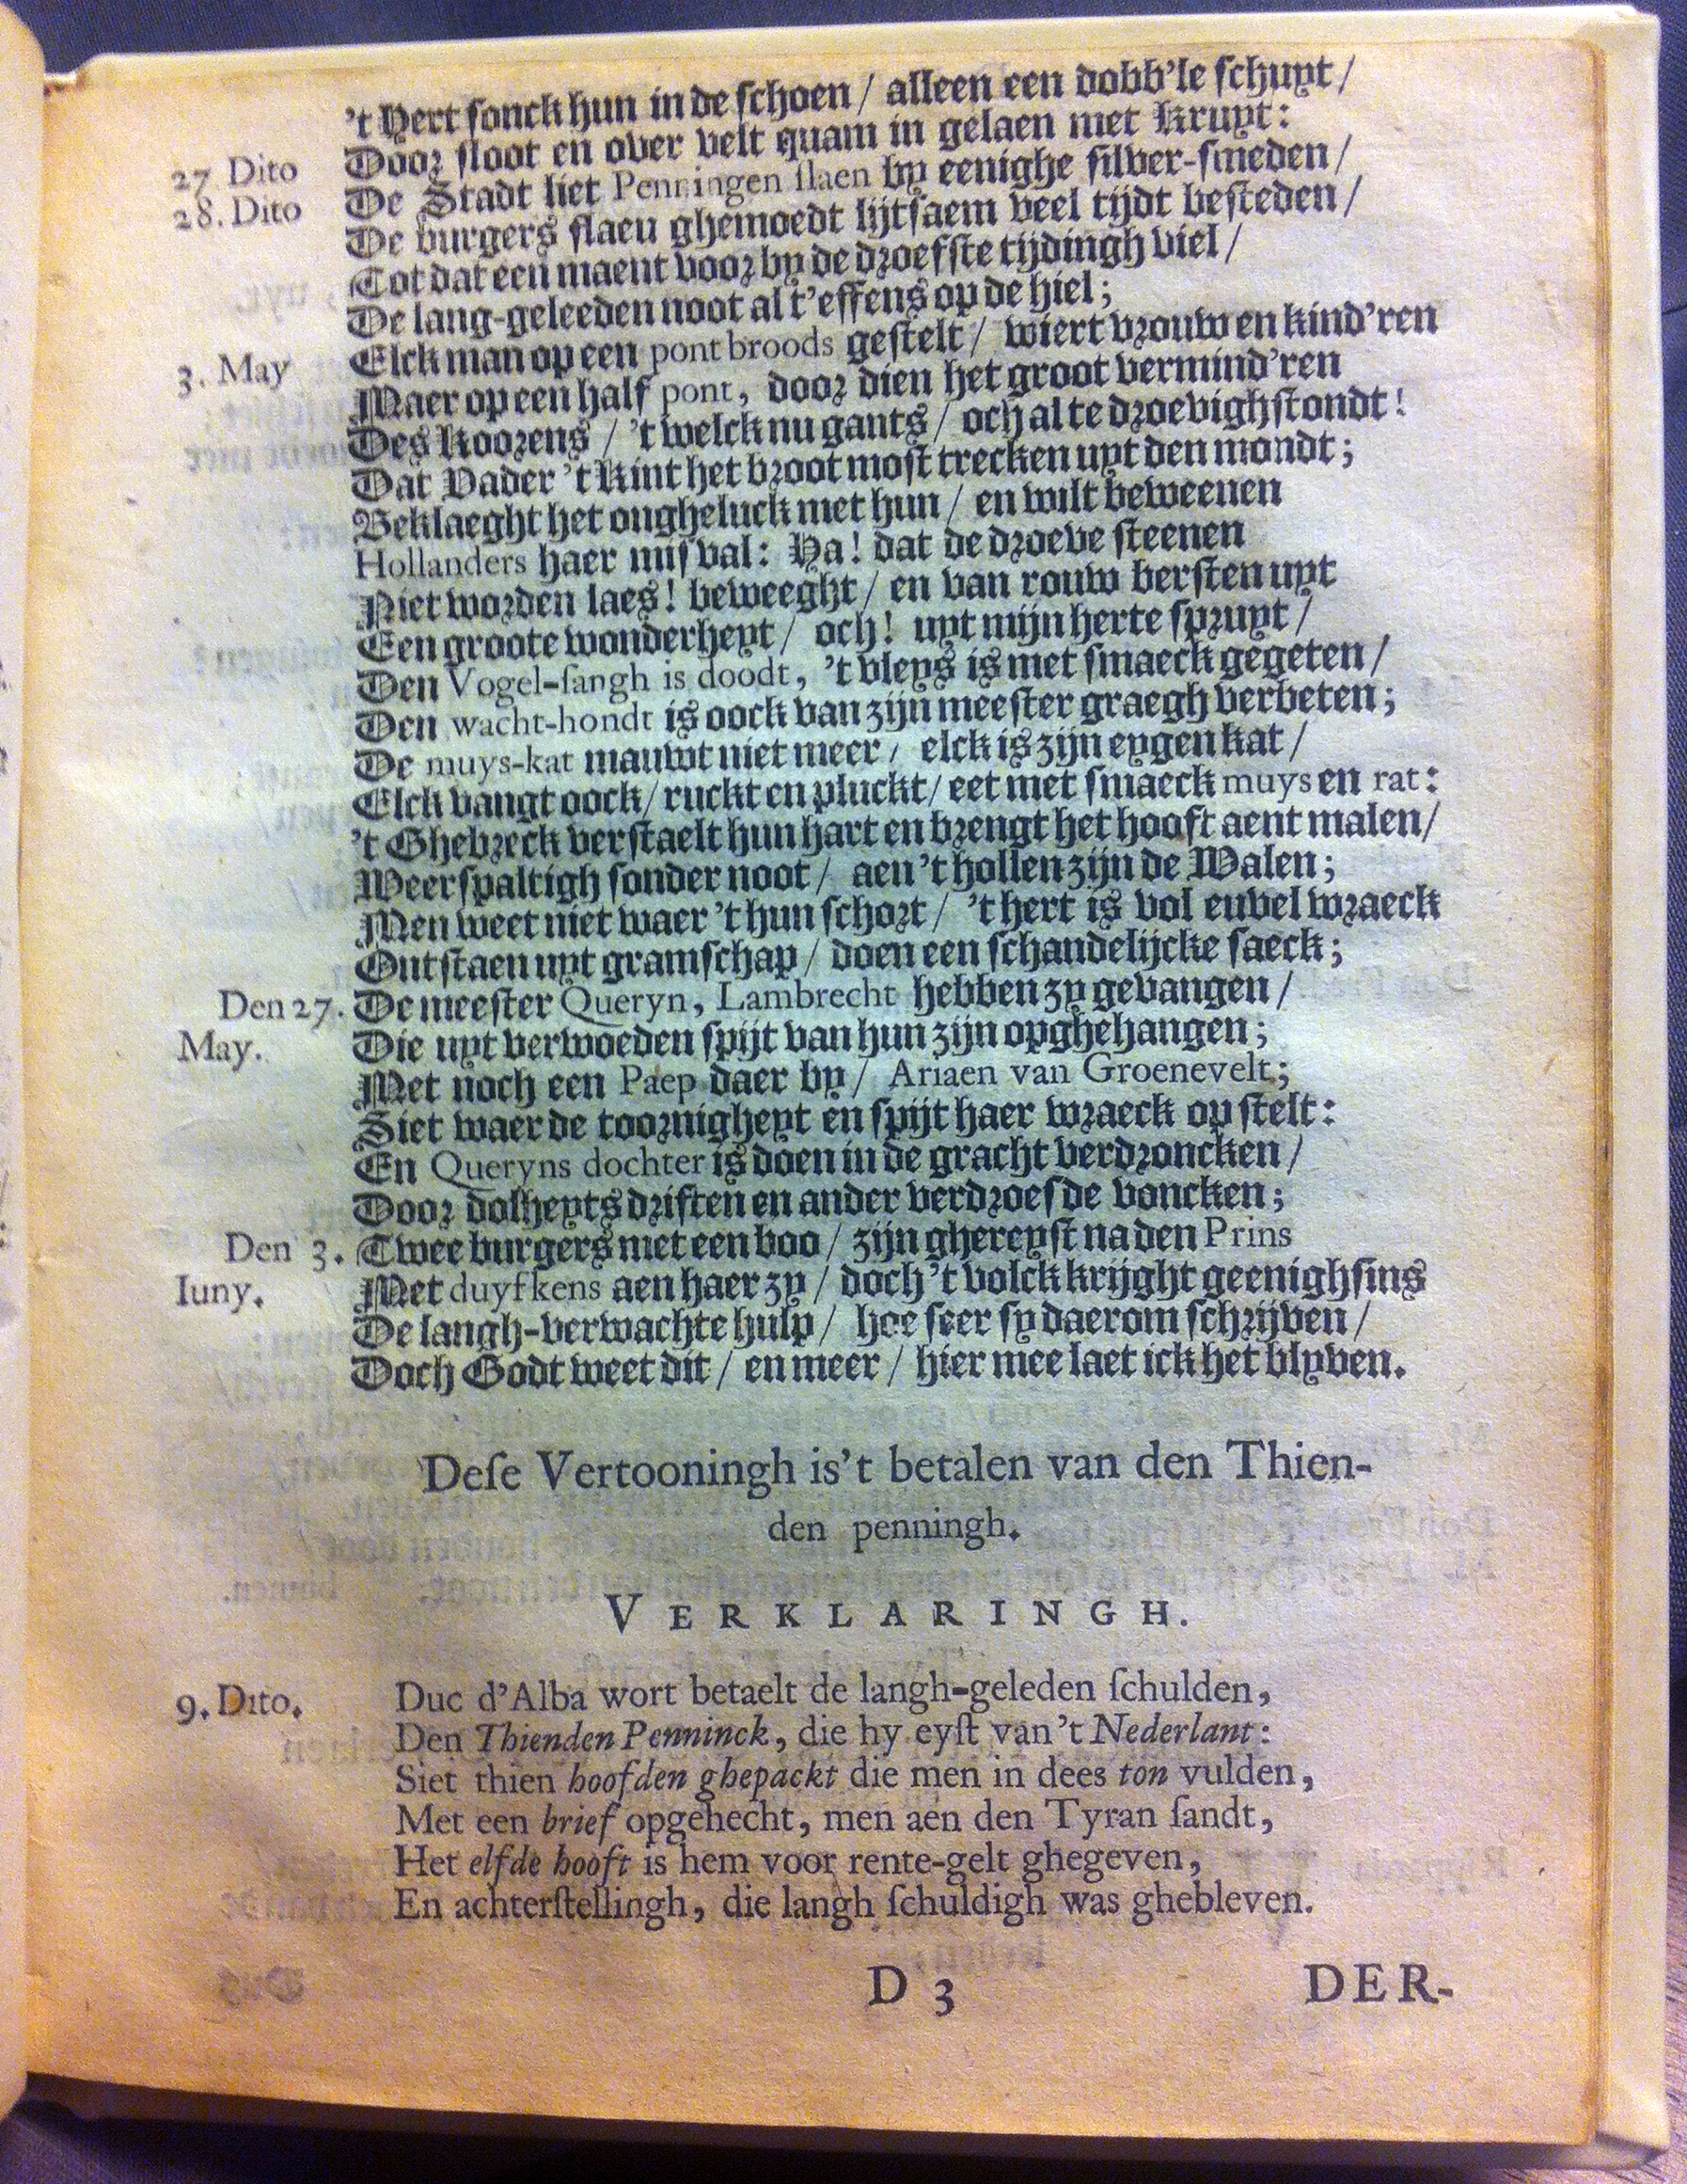 't Hert sonck hun in de schoen / alleen een dobb'le schuyt /
Door sloot en over velt quam in gelaen met Kruyt:
27 Dito De Stadt liet Penningen slaen by eenighe silver-smeden /
28. Dito De burgers flaeu ghemoedt lijtsaem veel tijdt besteden /
Tot dat een maent voor by de droefste tijdingh viel /
De lang-geleeden noot al t'effens op de hiel;
3. May Elck man op een pont broods gestelt / wiert vrouw en kind'ren
Maer op een half pont, door dien het groot vermind'ren
Des Koorens / 't welck nu gants / och al te droevigh stondt!
Dat Vader 't Kint het broot most trecken uyt den mondt;
Beklaeght het ongheluck met hun / en wilt beweenen
Hollanders haer misval: Ya! dat de droeve steenen
Niet worden laes! beweeght / en van rouw bersten uyt
Een groote wonderheyt / och! uyt mijn herte spruyt /
Den Vogel-sangh is doodt, 't vleys is met smaeck gegeten /
Den wacht-hondt is oock van zijn meester graegh verbeten;
De muys-kat mauwt niet meer / elck is zijn eygen kat /
Elck vangt oock / ruckt en pluckt / eet met smaeck muys en rat:
't Ghebreck verstaelt hun hart en brengt het hooft aent malen /
Weerspaltigh sonder noot / aen 't hollen zijn de Walen;
Men weet niet waer 't hun schort / 't hert is vol euvel wraeck
Ontstaen uyt gramschap / doen een schandelijcke saeck;
Den 27. De meester Queryn, Lambrecht hebben zy gevangen /
May. Die uyt verwoeden spijt van hun zijn opghehangen;
Met noch een Paep daer by / Ariaen van Groenevelt;
Siet waer de toornigheyt en spijt haer wraeck op stelt:
En Queryns dochter is doen in de gracht verdroncken /
Door dolheyts driften en ander verdroefde voncken;
Den 3. Twee burgers met een boo / zijn ghereyst na den Prins
Iuny. Met duyfkens aen haer zy / doch 't volck krijght geenighsins
De langh-verwachte hulp / hoe seer sy daerom schrijven /
Doch Godt weet dit / en meer / hier mee laet ick het blyven.
Dese Vertooningh is't betalen van den Thien-
den penningh.
VERKLARINGH.
9. Dito. Duc d'Alba wort betaelt de langh-geleden schulden,
Den Thienden Penninck, die hy eyst van 't Nederlant:
Siet thien hoofden ghepackt die men in dees ton vulden,
Met een brief opgehecht, men aen den Tyran sandt,
Het elfde hooft is hem voor rente-gelt ghegeven,
En achterstellingh, die langh schuldigh was ghebleven.
D 3 DER-